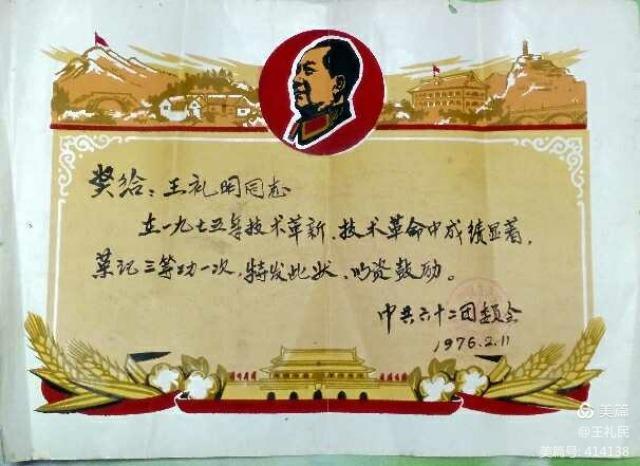 奖给：王礼明同志
在一九七五年技术革新、技术革命中成绩显著，
荣记三等功一次，特发此状，以资鼓励。
中共六十二团委员会
1976.2.11
美篇
@王礼民
美篇号: 414138